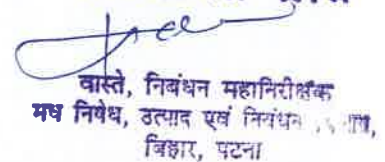 वास्ते, निबंधन महानिरीक्षक
मध निषेध, उत्पाद एवं निबंधन
बिहार, पटना